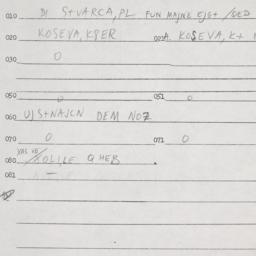 010 DI S+VARCA, PL FUN MAJNE EJGE+ /GED
020 KOSEVA, K8ER 021A. KOSEVA, K+
030 0
050 0 051 0
060 UJS+NAJCN DEM NOZ
070 0 071 0
080 KOLILE Q HEB
081 —